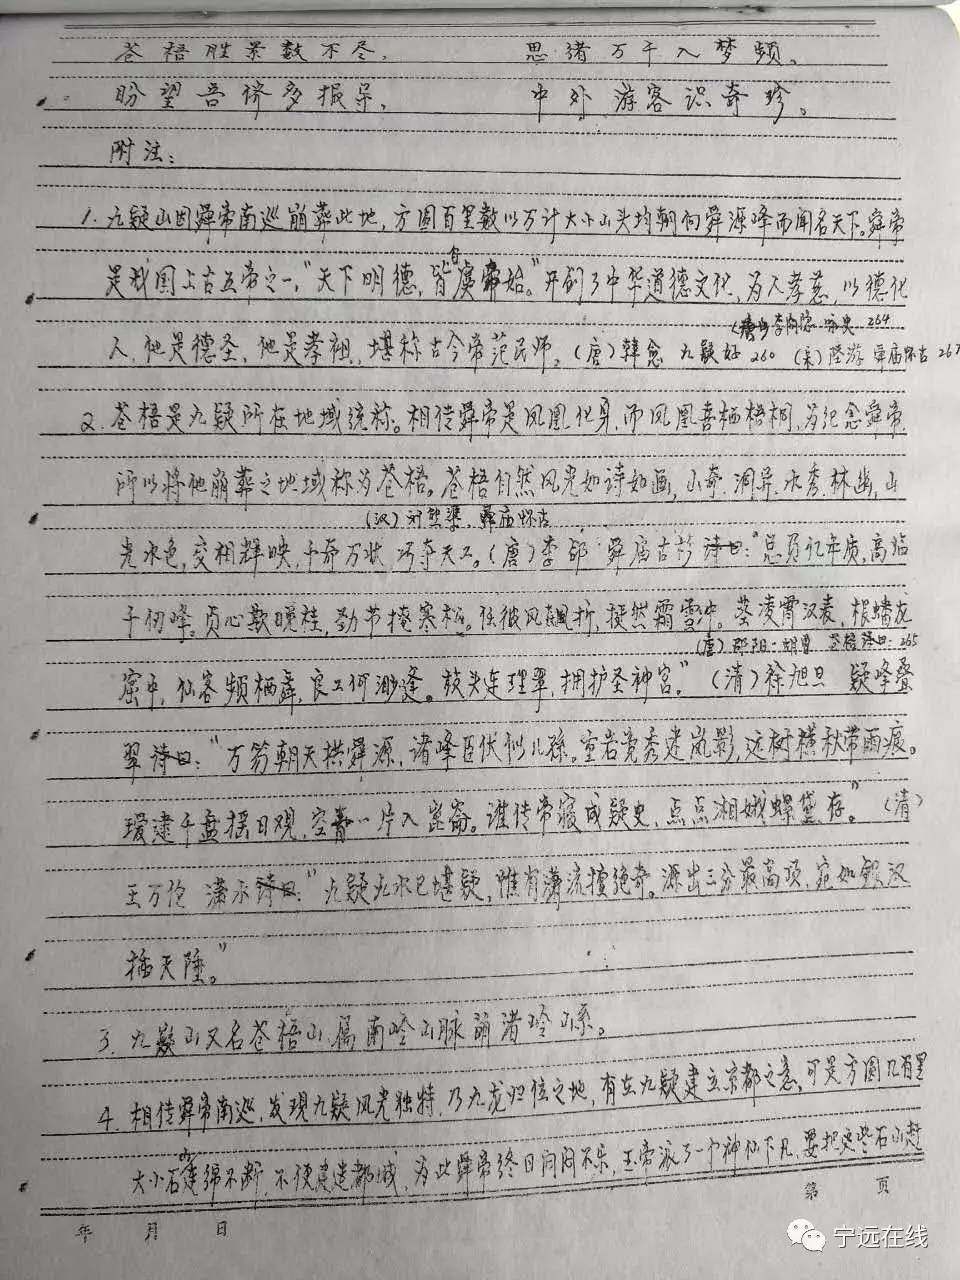 苍梧胜景数不尽， 思绪万千入梦频。
盼望吾侪多报导， 中外游客识奇珍。
附注：
1. 九疑山因舜帝南巡崩葬此地，方圆百里数以万计大小山头均朝向舜源峰而闻名天下。舜帝
是我国上古五帝之一，“天下明德，皆自虞帝始。”开创了中华道德文化，为人孝慈，以德化
李 咏史 264
人，他是德圣，他是孝祖，堪称古今帝范民师。（唐）韩愈 九疑 260 （宋）陆游 舜庙怀古 267
2. 苍梧是九疑所在地域统称。相传舜帝是凤凰化身，而凤凰喜栖梧桐，为纪念舜帝
所以将他崩葬之地域称为苍梧。苍梧自然风光如诗如画，山奇、洞异、水秀、林幽，山
（汉） 舜庙怀古
光水色，交相辉映，千奇万状，巧夺天工。（唐）李郃 舜庙古杉 诗曰：“总负亿年质，高临
千仞峰。贞心欺晚桂，劲节掩寒松。任彼风飙折，挺然霜雪中。茎凌霄汉表，根蟠龙
（唐）邵阳 胡曾 苍梧诗曰：265
窟中，仙客频栖舞，良工何渺逢。放头连理翠，拥护圣神宫。” （清）徐旭旦 疑峰叠
翠诗曰：“万笏朝天拱舜源，诸峰臣伏似儿孙。重岩竞秀建岚影，远树横秋带雨痕。
叆叇千盘摇日观，空青一片入崑崙。谁传帝寝成疑史，点点湘娥螺黛存。”（清）
王万 潇水诗曰：“九疑九水已堪疑，惟有潇流擅绝奇。源出三分最高顶，宛如银汉
插天陲。”
3. 九疑山又名苍梧山，属南岭山脉萌渚岭山系。
4. 相传舜帝南巡，发现九疑风光独特，乃九龙归位之地，有在九疑建立京都之意，可是方圆几百里
大小石山连绵不断，不便建造都城，为此舜帝终日闷闷不乐，玉帝派了一个神仙下凡，要把这些石山赶
第 页
年 月 日
宁远在线